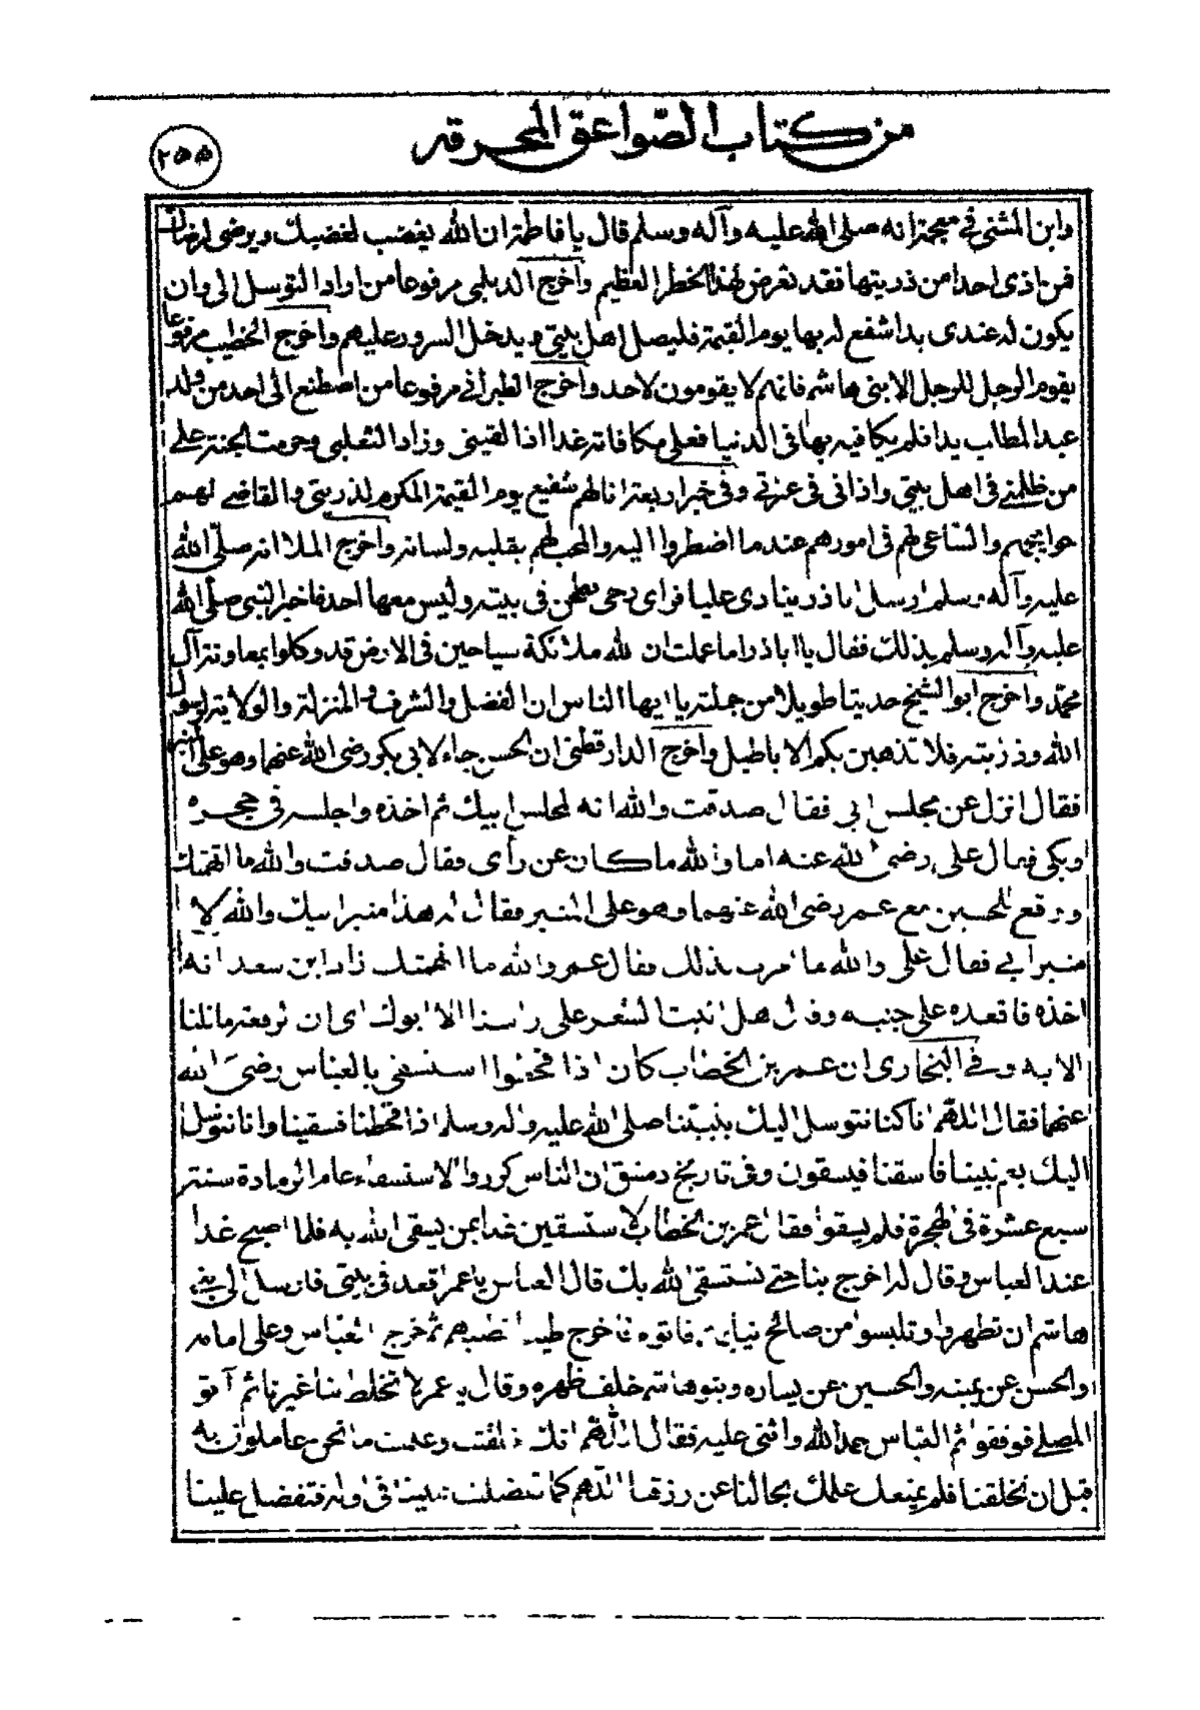 من كتاب الصواعق المحرقه
٢٥٥
وابن المثنى في معجمه انه صلى الله عليه وآله وسلم قال يا فاطمة ان الله يغضب لغضبك ويرضى لرضاك
فمن اذى احدا من ذريتها فقد تعرض لهذا الخطر العظيم واخرج الديلمي مرفوعا من اراد التوسل الى وان
يكون له عندى يدا شفع له بها يوم القيمة فليصل اهل بيتى ويدخل السرور عليهم واخرج الخطيب مرفوعا
يقوم الرجل للرجل الا بنى هاشم فانهم لا يقومون لاحد واخرج الطبرانى مرفوعا من اصطنع الى احد من ولد
عبد المطلب يدا فلم يكافيه بها فى الدنيا فعلى مكافاته غدا اذا لقينى وزاد الثعلبى وحرمت الجنة على
من ظلمنى فى اهل بيتى واذانى فى عترتى وفى خبر اربعة انا لهم شفيع يوم القيمة المكرم لذريتى والقاضى لهم
حوايجهم والساعى لهم فى امورهم عند ما اضطروا اليه والمحب لهم بقلبه ولسانه واخرج الملا انه صلى الله
عليه وآله وسلم ارسل اباذر ينادى عليا فراى رحى تطحن فى بيته وليس معها احد فاخبر النبى صلى الله
عليه وآله وسلم بذلك فقال يا اباذر اما علمت ان لله ملائكة سياحين فى الارض قد وكلوا بمعاونة آل
محمد واخرج ابو الشيخ حديثا طويلا من جملته يا ايها الناس ان الفضل والشرف والمنزلة والولاية لرسول
الله وذريته فلا تذهبن بكم الاباطيل واخرج الدارقطنى ان الحسن جاء لابى بكر رضى الله عنهما وهو على المنبر
فقال انزل عن مجلس ابى فقال صدقت والله انه لمجلس ابيك ثم اخذه واجلسه فى حجره
وبكى فقال على رضى الله عنه اما والله ما كان عن رأى فقال صدقت والله ما اتهمتك
ووقع للحسين مع عمر رضى الله عنهما وهو على المنبر فقال له هذا منبر ابيك والله لا
منبر ابى فقال على والله ما امرت بذلك فقال عمر والله ما اتهمتك زاد ابن سعد انه
اخذه فاقعده على جنبه وقال هل انبت الشعر على راسنا الا ابوك اى ان الرفعة ما نلنا
الا به وفى البخارى ان عمر بن الخطاب كان اذا قحطوا استسقى بالعباس رضى الله
عنهما فقال اللهم انا كنا نتوسل اليك بنبينا صلى الله عليه واله وسلم اذا قحطنا فتسقينا وانا نتوسل
اليك بعم نبينا فاسقنا فيسقون وفى تاريخ دمشق ان الناس كرروا الاستسقاء عام الرمادة سنة
سبع عشرة فى الهجرة فلم يسقوا فقال عمر بن الخطاب لاستسقين غدا بمن يسقى الله به فلما اصبح غدا
عند العباس وقال له اخرج بنا حتى نستسقى الله بك قال العباس يا عمر اقعد فى بيتى فارسل الى بنى
هاشم ان تطهروا وتلبسوا من صالح ثيابكم فاتوه فاخرج طيبا فطيبهم ثم خرج العباس وعلى امامه
والحسن عن يمينه والحسين عن يساره وبنو هاشم خلف ظهره وقال يا عمر لا تخلط بنا غيرنا ثم اتو
المصلى فوقفوا ثم العباس حمد الله واثنى عليه فقال اللهم انك خلقتنا وعلمت ما نحن عاملون به
قبل ان تخلقنا فلم يمنعك علمك بحالنا عن رزقنا اللهم كما تفضلت علينا فى اوله فتفضل علينا